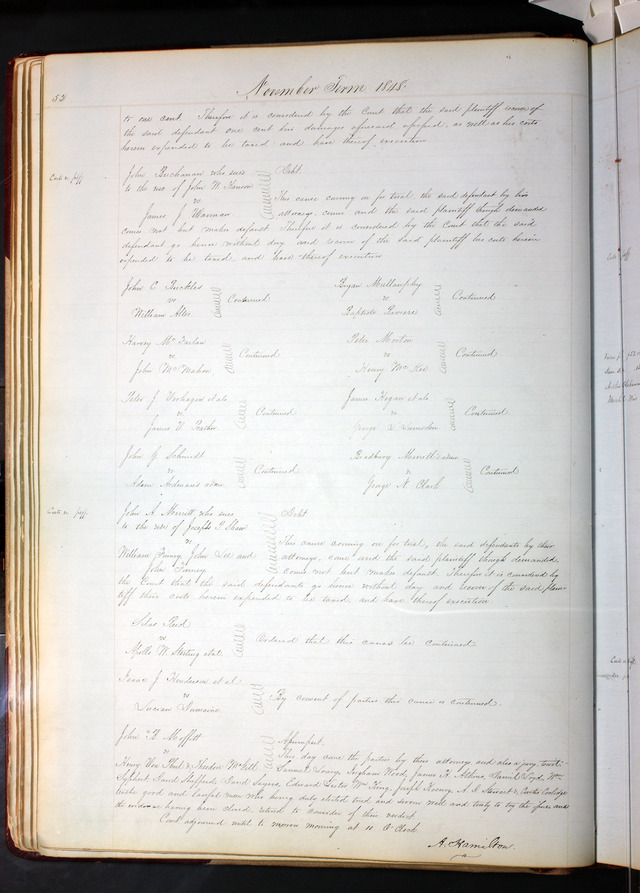 52
November Term 1848.
to one cent. Therefore it is considered by the Court that the said plaintiff recover of
the said defendant one cent his damages aforesaid as well as his costs
herein expended to be taxed and have thereof execution
Costs vs plff
John Buchanan who sues
to the use of John W.
vs
James J. Warman
Debt.
This cause coming on for trial, the said defendant by his
attorney come and the said plaintiff though demanded
comes not but makes default Therefore it is considered by the Court that the said
defendant go hence without day and recover of the said plaintiff his costs herein
expended to be taxed and have thereof execution
John C. Ruckles
vs
William Alles
Continued
Bryan Mullanphy
vs
Baptiste Riviere
Continued
Harvey Mc Farlan
vs
John Mc Mahon
Continued
Peter Morton
vs
Henry Mc Kee
Continued
Peter J. Verhagen et als
vs
James W.
Continued
James Kegan et als
vs
George L. Lumsden
Continued
John G. Schmidt
vs
Adam admr
Continued
Bradbury Merrill's admr
vs
George N. Clark
Continued
Costs vs plff.
John A. Merritt who sues
to the use of Joseph P. Shaw
vs
William Finney, John Lee and
John Finney
Debt
This cause coming on for trial, the said defendants by their
attorneys, come and the said plaintiff though demanded
comes not but makes default. Therefore it is considered by
the Court that the said defendants go hence without day and recover of the said plain-
tiff their costs herein expended to be taxed and have thereof execution
Silas Reed
vs
Apollo W. Sterling et al
Ordered that this cause be continued
Isaac J. Henderson et al
vs
Lucian Dumaine
By consent of parties this cause is continued.
John H. Moffett
vs
Henry Von Phul & Theodore McGill
Assumpsit.
This day came the parties by their attorneys and also a jury, towit:
Samuel Long, Bingham Wood, James H. Atkins, Daniel Loyd, Wm
David Shepherd, David Sayers, Edward Lester, Wm King, Joseph Koenig, A. J. Stewart & Curtis Coolidge
twelve good and lawful men who being duly elected tried and sworn well and truly to try the issues and
the evidence having been closed retired to consider of their verdict.
Court adjourned until to morrow morning at 10 O'Clock
A. Hamilton